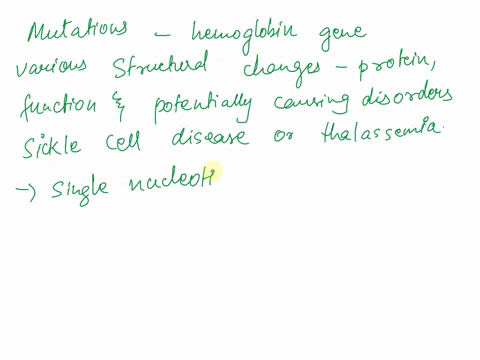 Mutations - hemoglobin gene
various Structural changes - protein,
function & potentially causing disorders
Sickle cell disease or thalassemia.
→ Single nucleoti